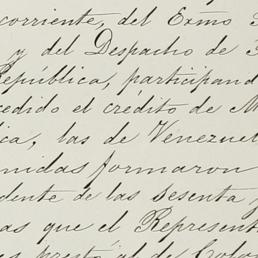 corriente, del Exmo
y del Despacho de
República, participand
cedido el crédito de M
ica, las de Venezuel
nidas formaron
dente de las sesenta y
as que el Represent
es prestó al de Colo